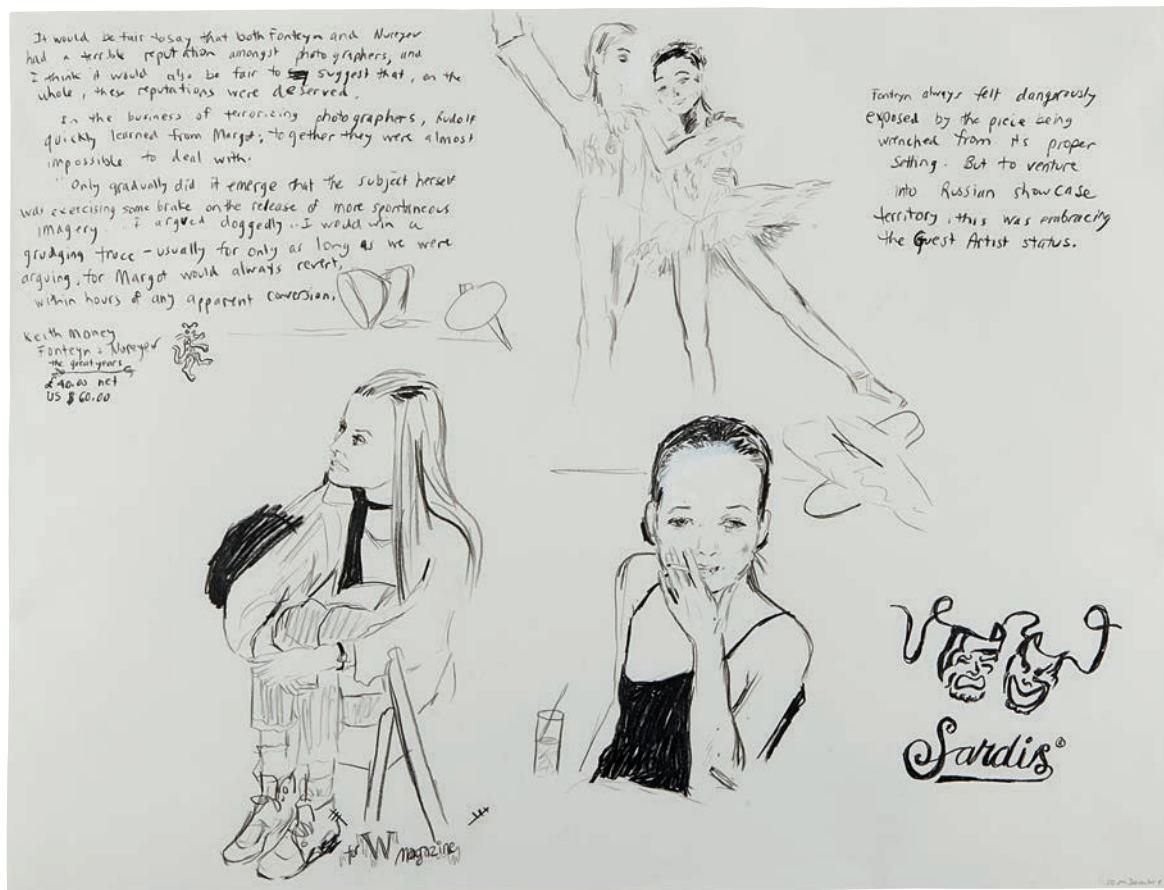 It would be fair to say that both Fonteyn and Nureyev
had a terrible reputation amongst photographers, and
I think it would also be fair to suggest that, on the
whole, these reputations were deserved.
In the business of terrorizing photographers, Rudolf
quickly learned from Margot; together they were almost
impossible to deal with.
Only gradually did it emerge that the subject herself
was exercising some brake on the release of more spontaneous
imagery. I argued doggedly.. I would win a
grudging truce - usually for only as long as we were
arguing, for Margot would always revert,
within hours of any apparent conversion.
Keith Money
Fonteyn & Nureyev
the great years
£40.00 net
US $60.00
Fonteyn always felt dangerously
exposed by the piece being
wrenched from its proper
setting. But to venture
into Russian showcase
territory, this was embracing
the Guest Artist status.
for W magazine
Sardis®